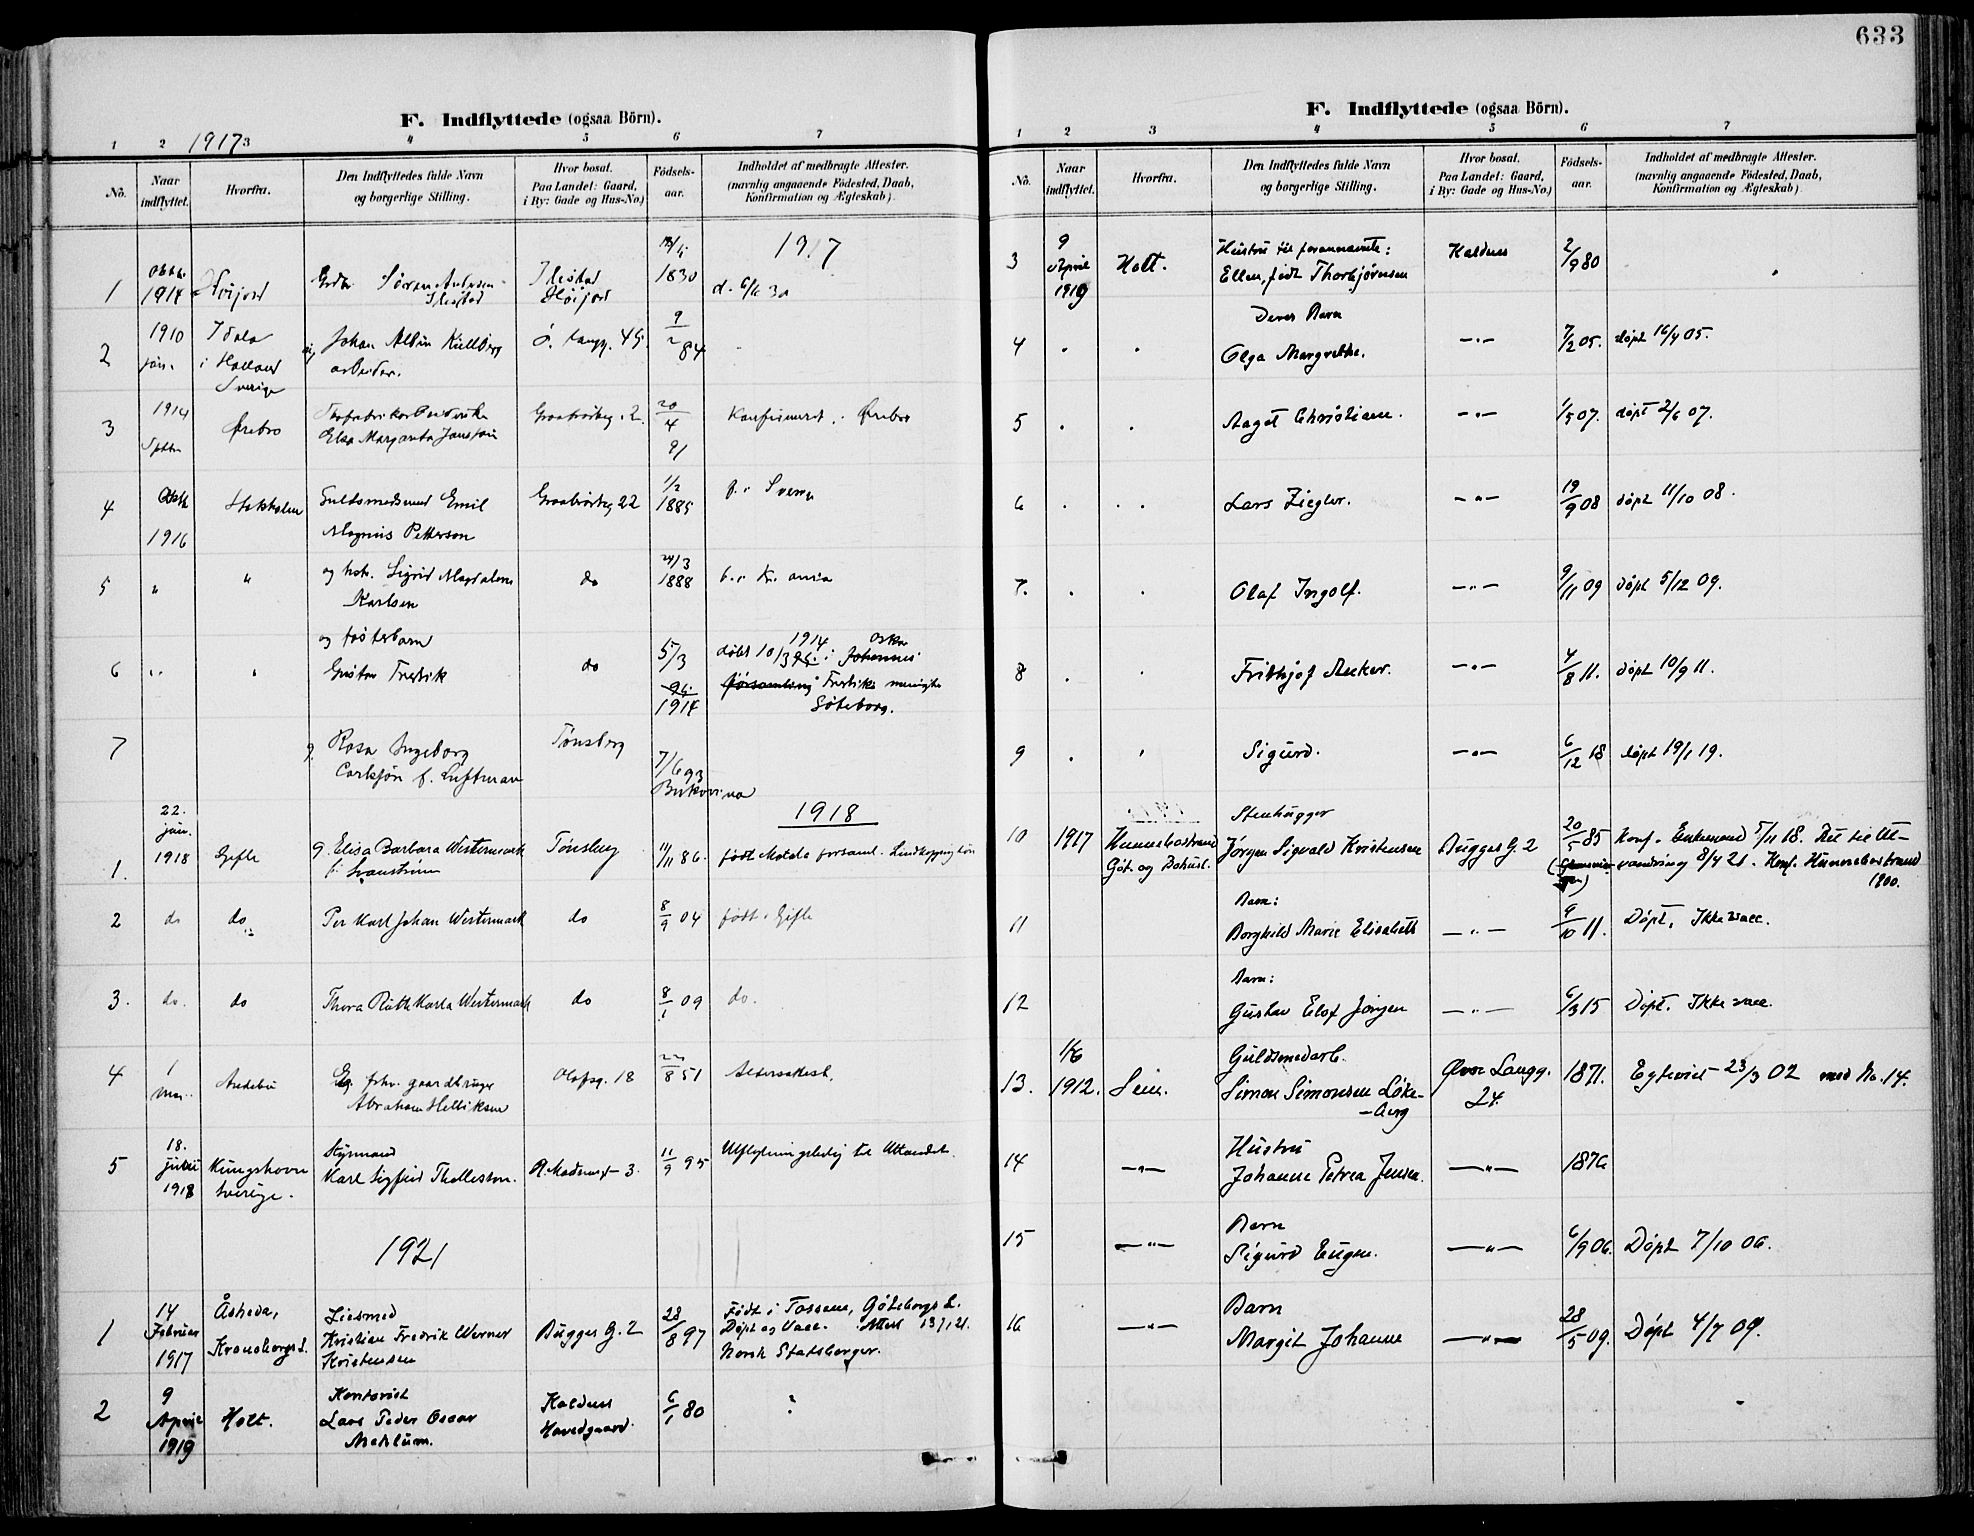 633
F. Indflyttede (ogsaa Börn).
1917
1 2 3 4 5 6 7
No.
Naar indflyttet.
Hvorfra.
Den Indflyttedes fulde Navn og borgerlige Stilling.
Hvor bosat.
Paa Landet: Gaard,
i By: Gade og Hus-No.)
Födsels-aar.
Indholdet af medbragte Attester.
(navnlig angaaende Födested, Daab,
Konfirmation og Ægteskab)
1917
1 1914 Höijord Sören Andersen 1830
Ilestad Ilestad Höijord
2 1910 jan. i Halland Sverige Johan Albin Kullberg arbeider. Ø. Langg. 45 9/2 84
3 1914 Septbr Ørebro Elsa Margareta Graabrödreg. 2. 20/4 91 Konfirmeret i Ørebro
4 1916 Stokholm Guldsmedsvend Emil Magnus Petterson Graabrödreg 22 1/2 1885 f. i Sverige
5 " " og hstr. Sigrid Magdalene Karlsen do 1888 f. i Kr.ania
6 " " og fosterbarn Gustav Fredrik do 5/3 1914 döbt 10/3 1914 i Oskar Fredriks menighed Göteborg.
7 g. Rosa Ingeborg Carlsjön f. Luftman Tönsberg 7/6 93 Bukovina
1918
1. 22. jan. 1918 Gefle g. Elisa Barbara Westermark f. Svanström Tönsberg 14/11 86. född Motala forsaml. Linköping län
2 do do Per Karl Johan Westermark do 8/9 04 født i Gefle
3. do. do Thora Ruth Karla Westermark do 8/1 09 do.
4 1 Andebu Eg. fhv. gaardbruger Abraham Helliksen Olafsg. 18 22/8 51
5 18. juni 1918 Kungshavn Sverige. Styrmand Karl Sigfrid Thollesson. 3. 11/9 95 Utflytningsbevis til Utlandet.
1921
1 14 Februar 1917 Åsheda, Kronobergs L. Kristian Fredrik Werner Kristensen Bugges G. 2 28/8 97 Født i Tossene, Göteborgs L. Døpt og Vacc. Attest 13/1 21. Norsk Statsborger.
2 9 April 1919 Holt. Kontorist Lars Peder Oscar Mehlum. Kaldnes Hovedgaard. 6/1 80 "
F. Indflyttede (ogsaa Börn).
1 2 3 4 5 6 7
No.
Naar indflyttet.
Hvorfra.
Den Indflyttedes fulde Navn og borgerlige Stilling.
Hvor bosat.
Paa Landet: Gaard,
i By: Gade og Hus-No.)
Födsels-aar.
Indholdet af medbragte Attester.
(navnlig angaaende Födested, Daab,
Konfirmation og Ægteskab)
3 9 April 1919 Holt. Hustru til forannævnte: Ellen, født Thorbjörnsen Kaldnes 2/9 80 "
Deres Barn
4 " " Olga Margrethe. —"— 7/2 05. døpt 16/4 05.
5 " " Aagot Christiane. —"— 1/5 07. døpt 2/6 07.
6 " " Lars Ziegler. —"— 19/9 08 døpt 11/10 08.
7. " " Olaf Ingolf. —"— 9/11 09 døpt 5/12 09.
8 " " Frithjof Anker. —"— 4/8 11. døpt 10/9 11.
9 " " Sigurd. —"— 6/12 18 døpt 19/1 19.
10 1917 Hunnebostrand Göt. og Bohusl. Stenhugger Jørgen Sigvald Kristensen Bugges G. 2 20/5 85 Konf. Enkemand 5/11 18. Det til Ut-
vandring 8/4 21. Konf. Hunnebostrand 1900.
11 Barn: Borghild Marie Elisabeth —"— 9/10 11. Døpt. Ikke vacc.
12 Barn: Gustav Elof Jörgen —"— 6/3 15 Døpt. Ikke vacc.
13. 1/6 1912. Sem. Guldsmedarb. Simon Simonsen Løke-
-berg Øvre Langg. 24. 1871. Egteviet 23/3 02 med No. 14.
14 —"— Hustru Johanne Petrea Jensen. —"— 1876
15 —"— Barn Sigurd Eugen. —"— 6/9 06. Døpt 7/10 06.
16 —"— Barn Margit Johanne —"— 28/5 09. Døpt 4/7 09.